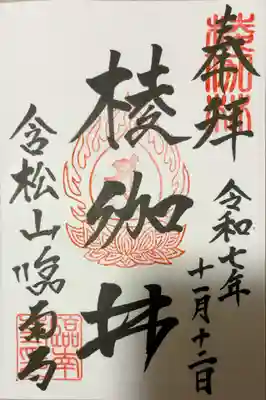 奉拝
令和七年
十一月十二日
棱伽林
含松山臨南寺